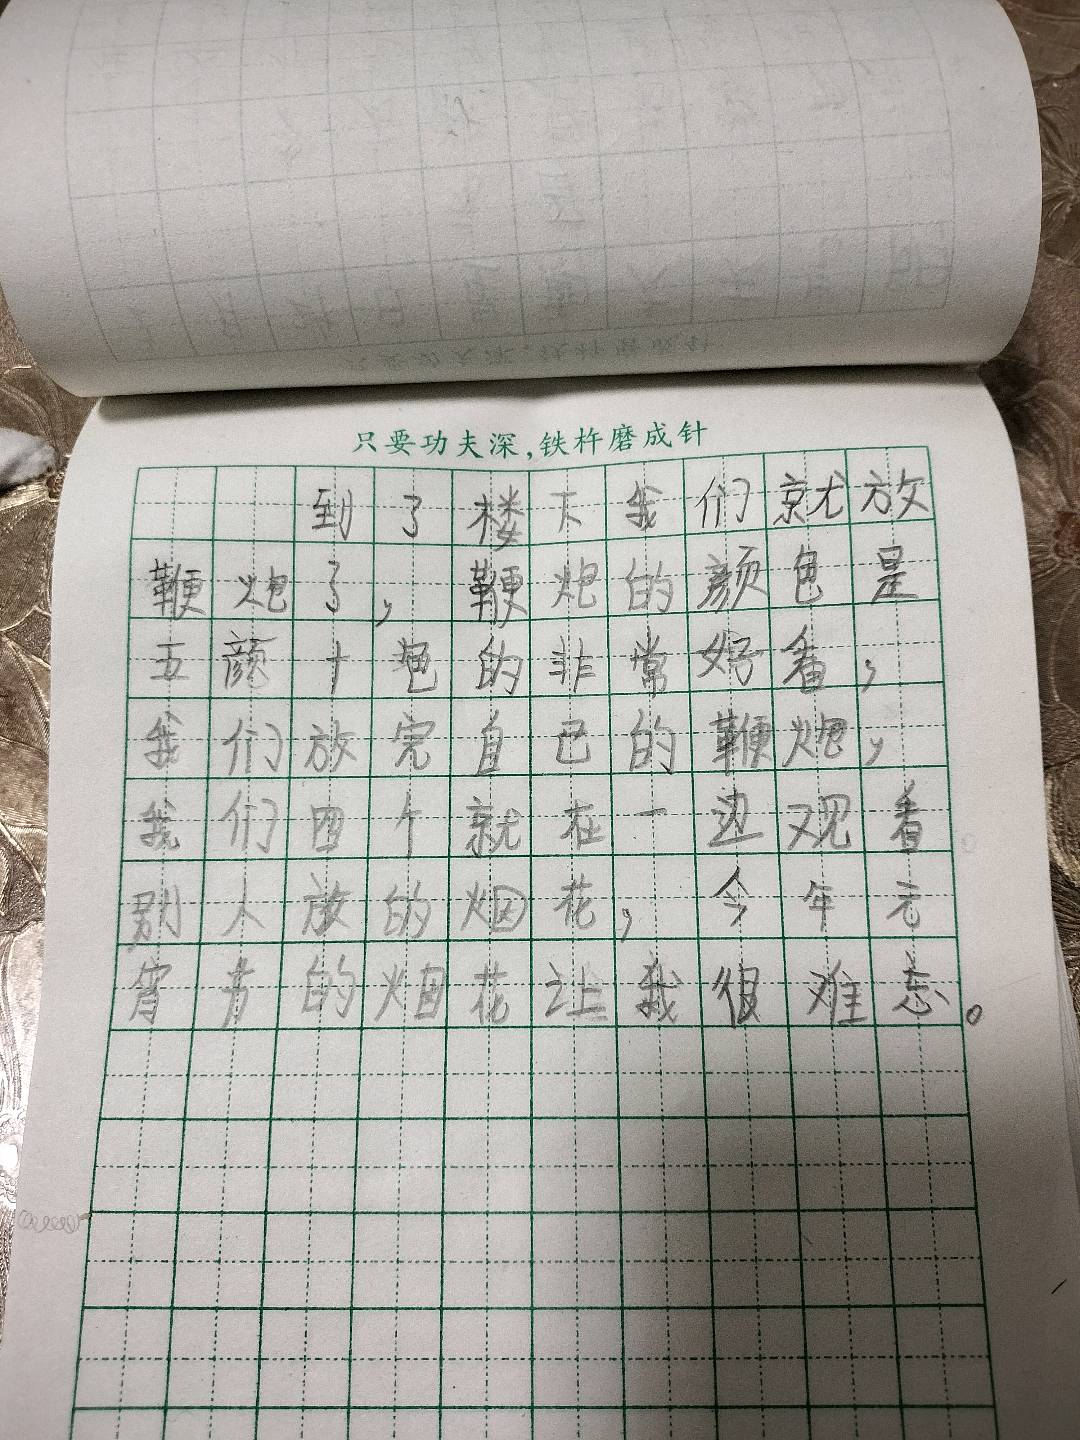 只要功夫深,铁杵磨成针
到了楼下我们就放
鞭炮了,鞭炮的颜色是
五颜十色的非常好看,
我们放完自己的鞭炮,
我们四个就在一边观看
别人放的烟花,今年元
宵节的烟花让我很难忘。